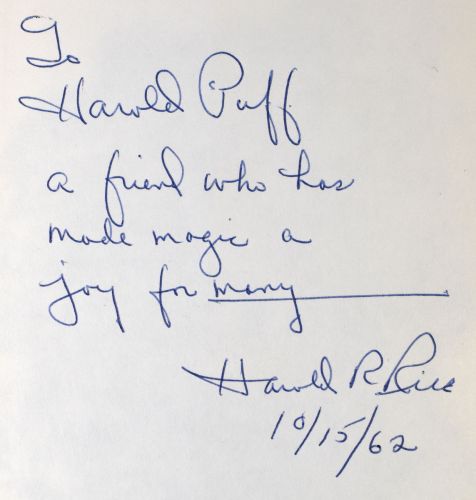 To
Harold Puff
a friend who has
made magic a
joy for many
Harold R. Rice
10/15/62